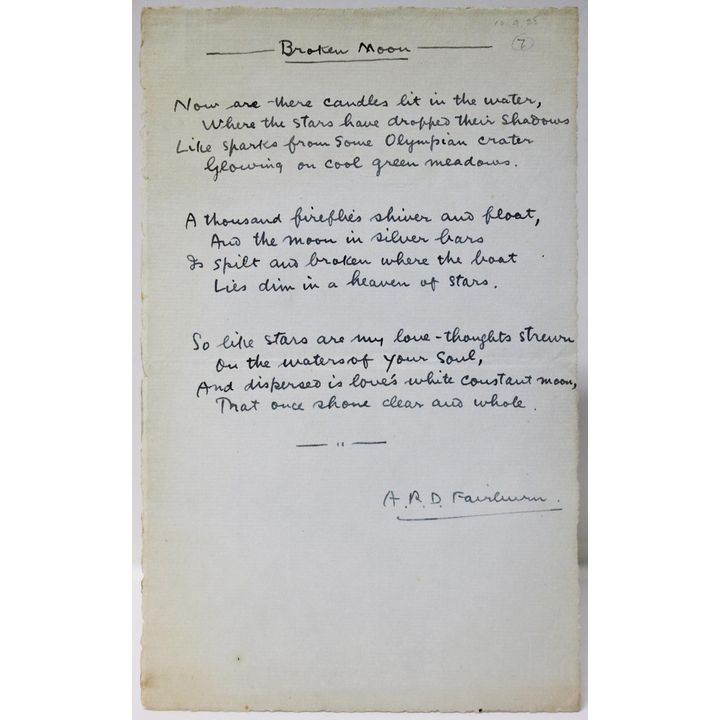 10.9.25
(7)
Broken Moon
Now are there candles lit in the water,
Where the stars have dropped their shadows
Like sparks from some Olympian crater
Glowing on cool green meadows.
A thousand fireflies shiver and float,
And the moon in silver bars
Is spilt and broken where the boat
Lies dim in a heaven of stars.
So like stars are my love-thoughts strewn
On the waters of your soul,
And dispersed is love's white constant moon,
That once shone clear and whole.
A.R.D. Fairburn.